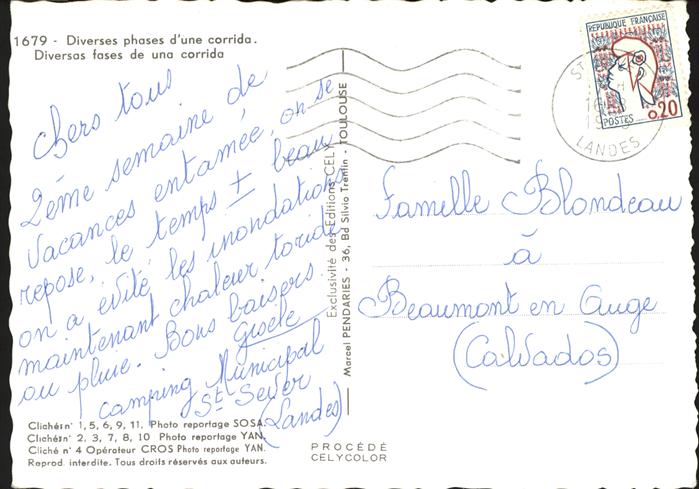 1679 - Diverses phases d'une corrida.
Diversas fases de una corrida
Chers tous
2ème semaine de
vacances entamée, on se
repose, le temps ± beau
on a évité les inondations
maintenant chaleur torride
ou pluie. Bons baisers.
Gisèle
Camping Municipal
St Sever
(Landes)
Clichés n° 1, 5, 6, 9, 11, Photo reportage SOSA.
Clichés n° 2, 3, 7, 8, 10 Photo reportage YAN.
Cliché n° 4 Opérateur CROS Photo reportage YAN.
Reprod. interdite. Tous droits réservés aux auteurs.
Exclusivité des Editions CELY
Marcel PENDARIES - 36, Bd Silvio Trentin - TOULOUSE
PROCÉDÉ
CELYCOLOR
REPUBLIQUE FRANÇAISE
POSTES 0,20
ST
LANDES
Famille Blondeau
à
Beaumont en Auge
(Calvados)